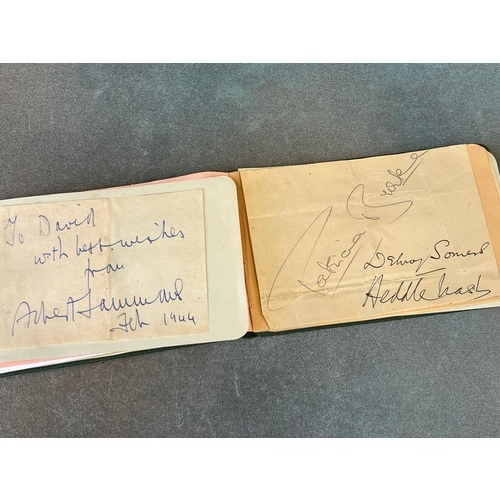 To David
with best wishes
from
Albert Sammons
Feb 1944
Patricia Burke
Debroy Somers
Heddle Nash